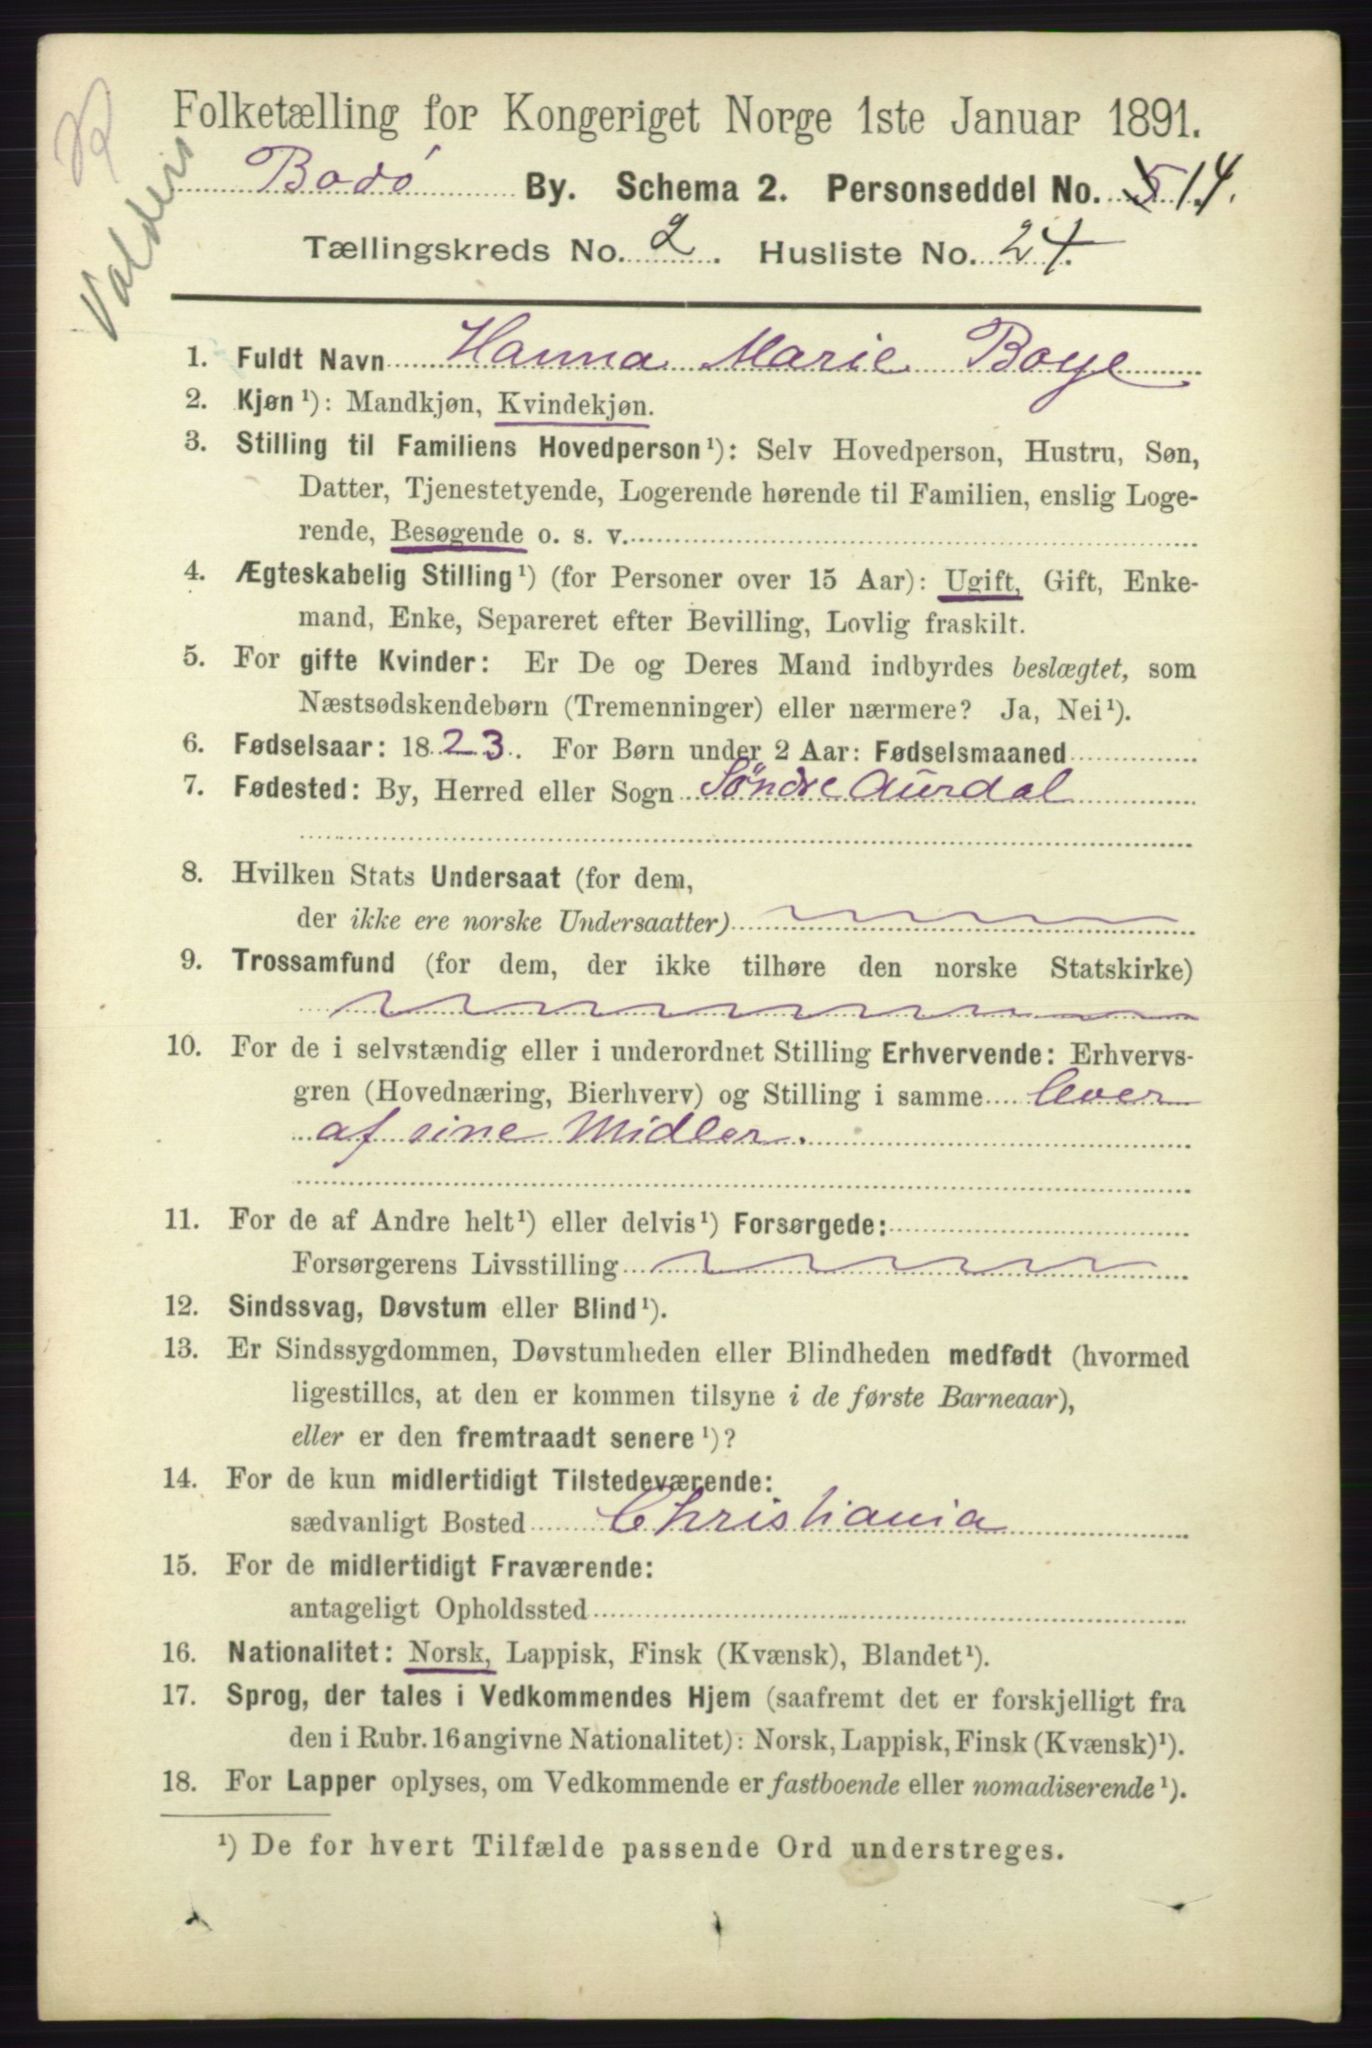 Folketælling for Kongeriget Norge 1ste Januar 1891.
Valders
Bodö By. Schema 2. Personseddel No. 5 14.
Tællingskreds No. 2. Husliste No. 24.
1. Fuldt Navn Hanna Marie Boye
2. Kjøn¹): Mandkjøn, Kvindekjøn.
3. Stilling til Familiens Hovedperson¹): Selv Hovedperson, Hustru, Søn,
Datter, Tjenestetyende, Logerende hørende til Familien, enslig Loge-
rende, Besøgende o. s. v.
4. Ægteskabelig Stilling¹) (for Personer over 15 Aar): Ugift, Gift, Enke-
mand, Enke, Separeret efter Bevilling, Lovlig fraskilt.
5. For gifte Kvinder: Er De og Deres Mand indbyrdes beslægtet, som
Næstsødskendebørn (Tremenninger) eller nærmere? Ja, Nei¹).
6. Fødselsaar: 1823. For Børn under 2 Aar: Fødselsmaaned
7. Fødested: By, Herred eller Sogn Söndre Aurdal
8. Hvilken Stats Undersaat (for dem,
der ikke ere norske Undersaatter)
9. Trossamfund (for dem, der ikke tilhøre den norske Statskirke)
10. For de i selvstændig eller i underordnet Stilling Erhvervende: Erhvervs-
gren (Hovednæring, Bierhverv) og Stilling i samme lever
af sine Midler.
11. For de af Andre helt¹) eller delvis¹) Forsørgede:
Forsørgerens Livsstilling
12. Sindssvag, Døvstum eller Blind¹).
13. Er Sindssygdommen, Døvstumheden eller Blindheden medfødt (hvormed
ligestilles, at den er kommen tilsyne i de første Barneaar),
eller er den fremtraadt senere¹)?
14. For de kun midlertidigt Tilstedeværende:
sædvanligt Bosted Christiania
15. For de midlertidigt Fraværende:
antageligt Opholdssted
16. Nationalitet: Norsk, Lappisk, Finsk (Kvænsk), Blandet¹).
17. Sprog, der tales i Vedkommendes Hjem (saafremt det er forskjelligt fra
den i Rubr. 16 angivne Nationalitet): Norsk, Lappisk, Finsk (Kvænsk)¹).
18. For Lapper oplyses, om Vedkommende er fastboende eller nomadiserende¹).
¹) De for hvert Tilfælde passende Ord understreges.